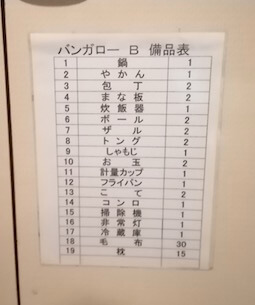 バンガロー B 備品表
1 鍋 1
2 やかん 1
3 包丁 2
4 まな板 2
5 炊飯器 1
6 ボール 2
7 ザル 2
8 トング 2
9 しゃもじ 1
10 お玉 2
11 計量カップ 1
12 フライパン 1
13 こて 2
14 コンロ 1
15 掃除機 1
16 非常灯 1
17 冷蔵庫 1
18 毛布 30
19 枕 15